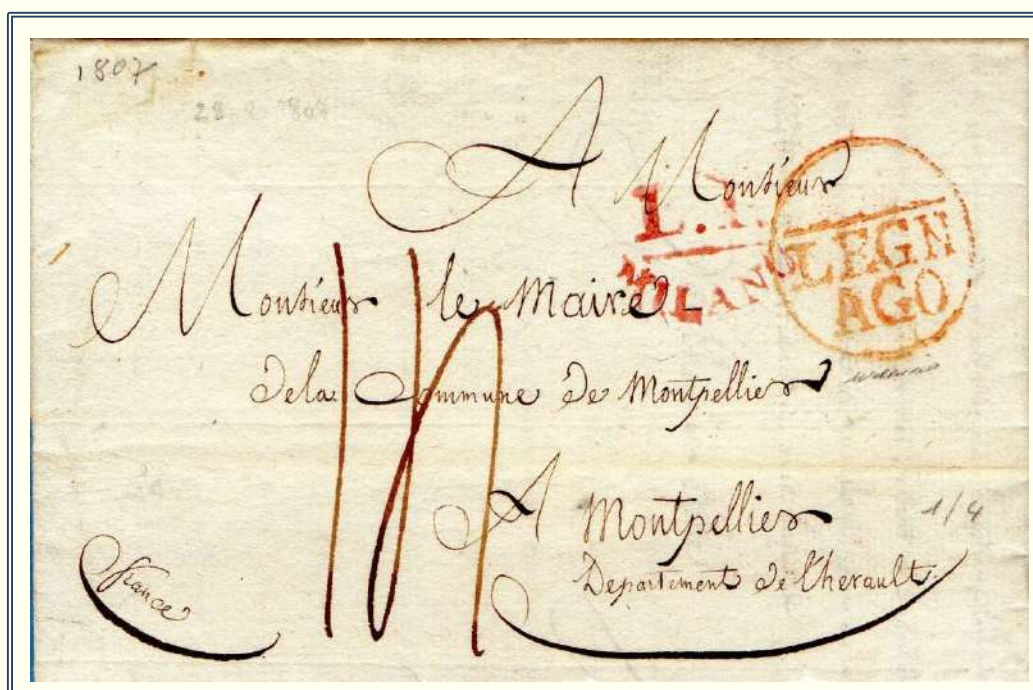 1807
28 2 1807
A Monsieur
L.I.
MILANO
LEGN
AGO
Monsieur le Maire
dela Commune de Montpellier
A Montpellier
1/4
Departement de l'herault.
france